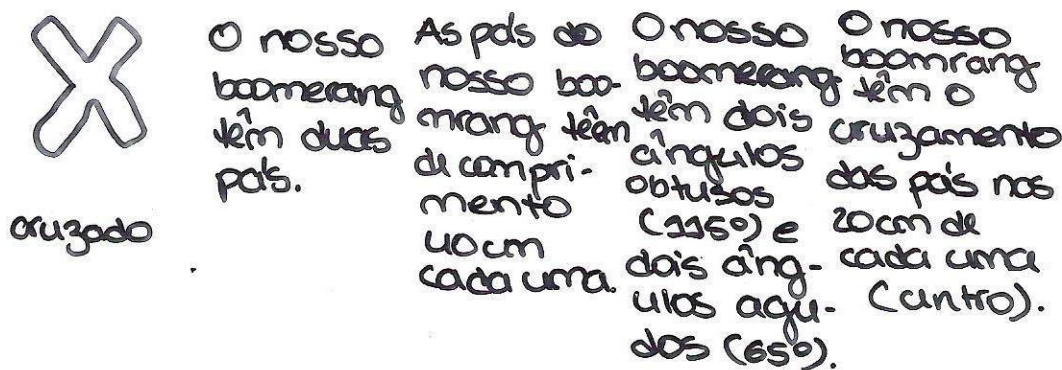 cruzado
O nosso
boomerang
têm duas
pás.
As pás do
nosso boo-
mrang têem
de compri-
mento
40cm
cada uma.
O nosso
boomerang
têm dois
ângulos
obtusos
(115º) e
dois âng-
ulos agu-
dos (65º).
O nosso
boomrang
têm o
cruzamento
das pás nos
20cm de
cada uma
(cintro).